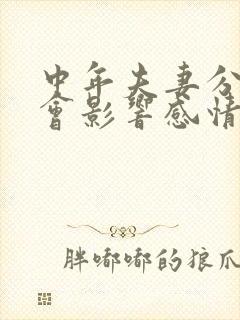 中年夫妻分
會影響感情
胖嘟嘟的狼爪